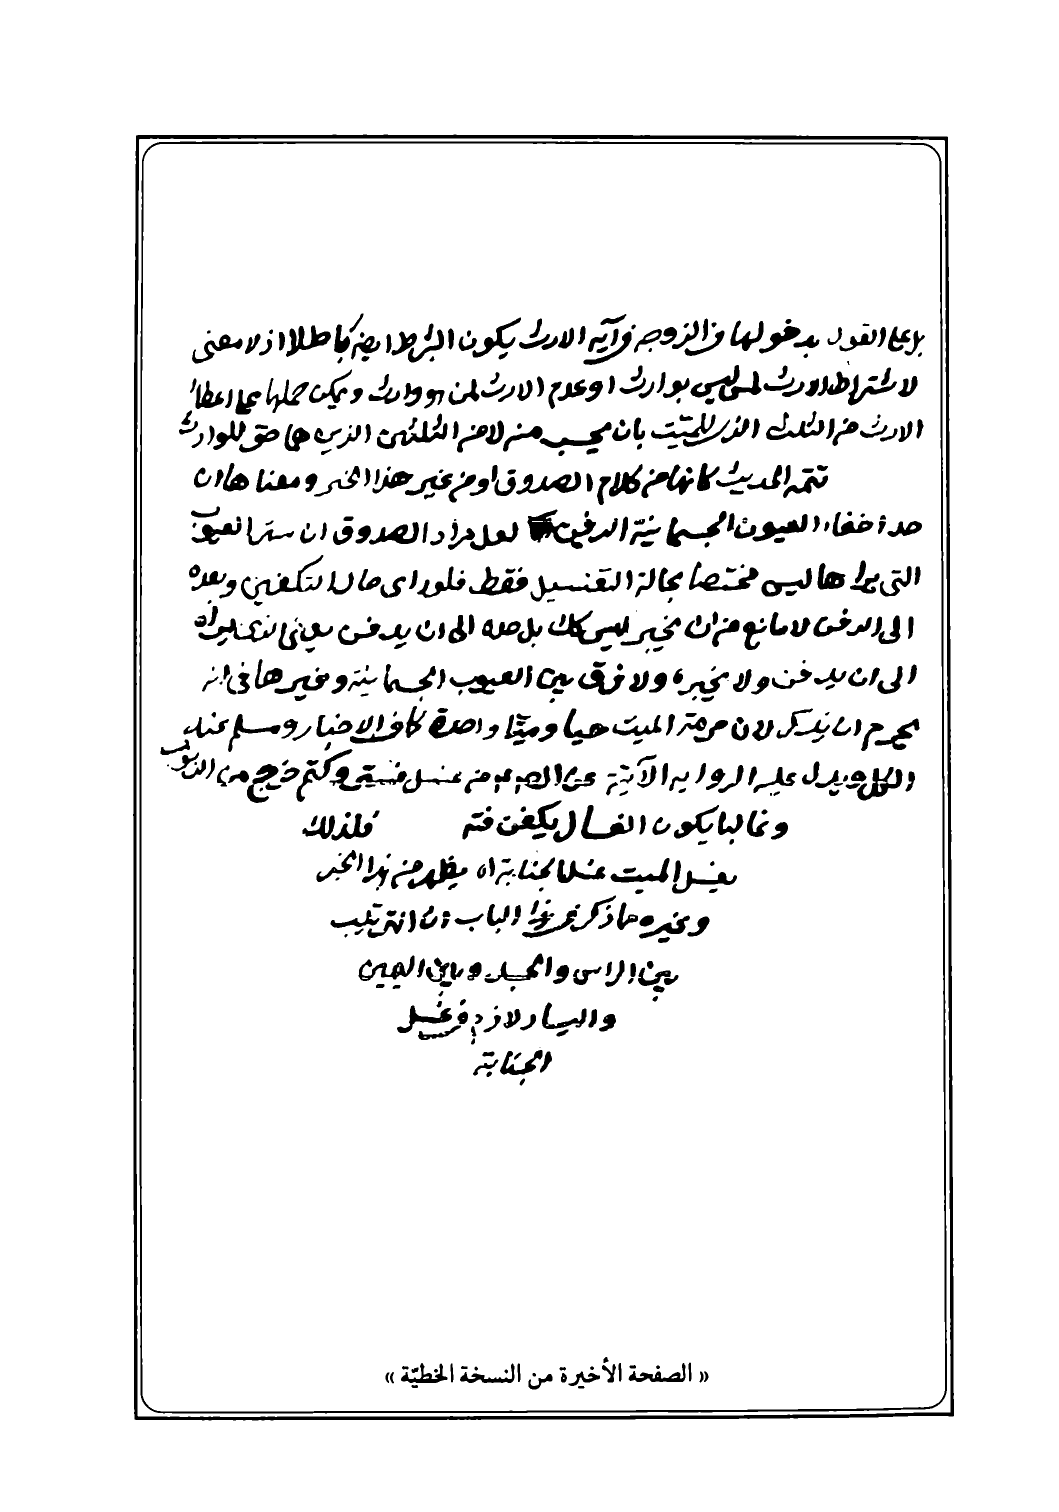 بل على القول بدخولها في الزوج في آية الارث يكون الشرط ايضا باطلا اذ لا معنى
لاشتراط الارث لمن ليس بوارث او عدم الارث لمن هو وارث ويمكن حملها على اعطاء
الارث من الثلث الذي للميت بان يحسب منه لا من الثلثين الذين هما حق للوارث
تتمة الحديث كانها من كلام الصدوق او من غير هذا الخبر ومعناها ان
حد اخفاء العيون الجسمانية الدفين لعل مراد الصدوق ان ستر العيوب
التى يراها ليس مختصا بحالة التغسيل فقط فلو راى حال التكفين وبعده
الى الدفن لا مانع من ان يخبر ليس كك بل حده الى ان يدفن يعنى
الى ان يدفن ولا يخبر ولا فرق بين العيوب الجسمانية وغيرها فى انه
يحرم ان يذكر لان حرمة الميت حيا وميتا واحدة كما في الاخبار ومسلم عند
الكل ويدل عليه الرواية الآتية عن الصم من غسل ميتا وكتم خرج من الذنوب
وغالبا يكون الغسال يكفن فلذلك
يغسل الميت غسل الجنابة اه يظهر من هذا الخبر
وغيره مما ذكر في هذا الباب ان الترتيب
بين الراس والجسد وبين اليمين
واليسار لازم في غسل
الجنابة
« الصفحة الأخيرة من النسخة الخطيّة »